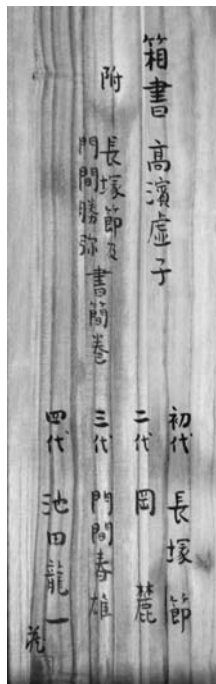 箱書 高濱虚子
附
長塚節及
門間勝弥
書簡巻
初代 長塚節
二代 岡麓
三代 門間春雄
四代 池田龍一